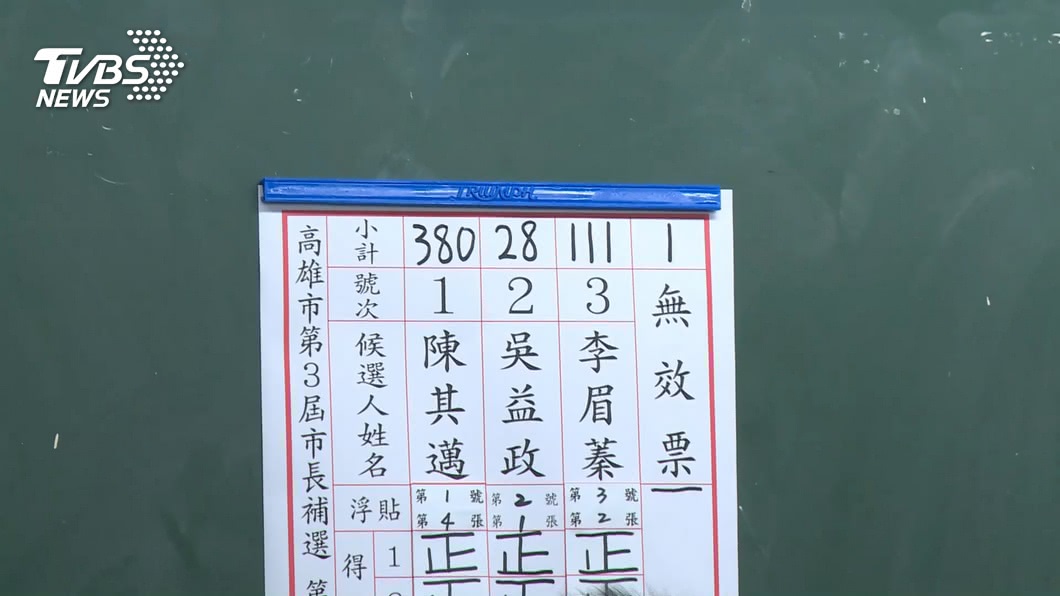 TVBS
NEWS
TRIUMPH
高雄市第3屆市長補選 第
小計 380 28 111 1
號次 1 2 3
候選人姓名 陳其邁 吳益政 李眉蓁 無效票
浮貼 第1號 第2號 第3號
第4張 第1張 第2張
得 1 正 正 正